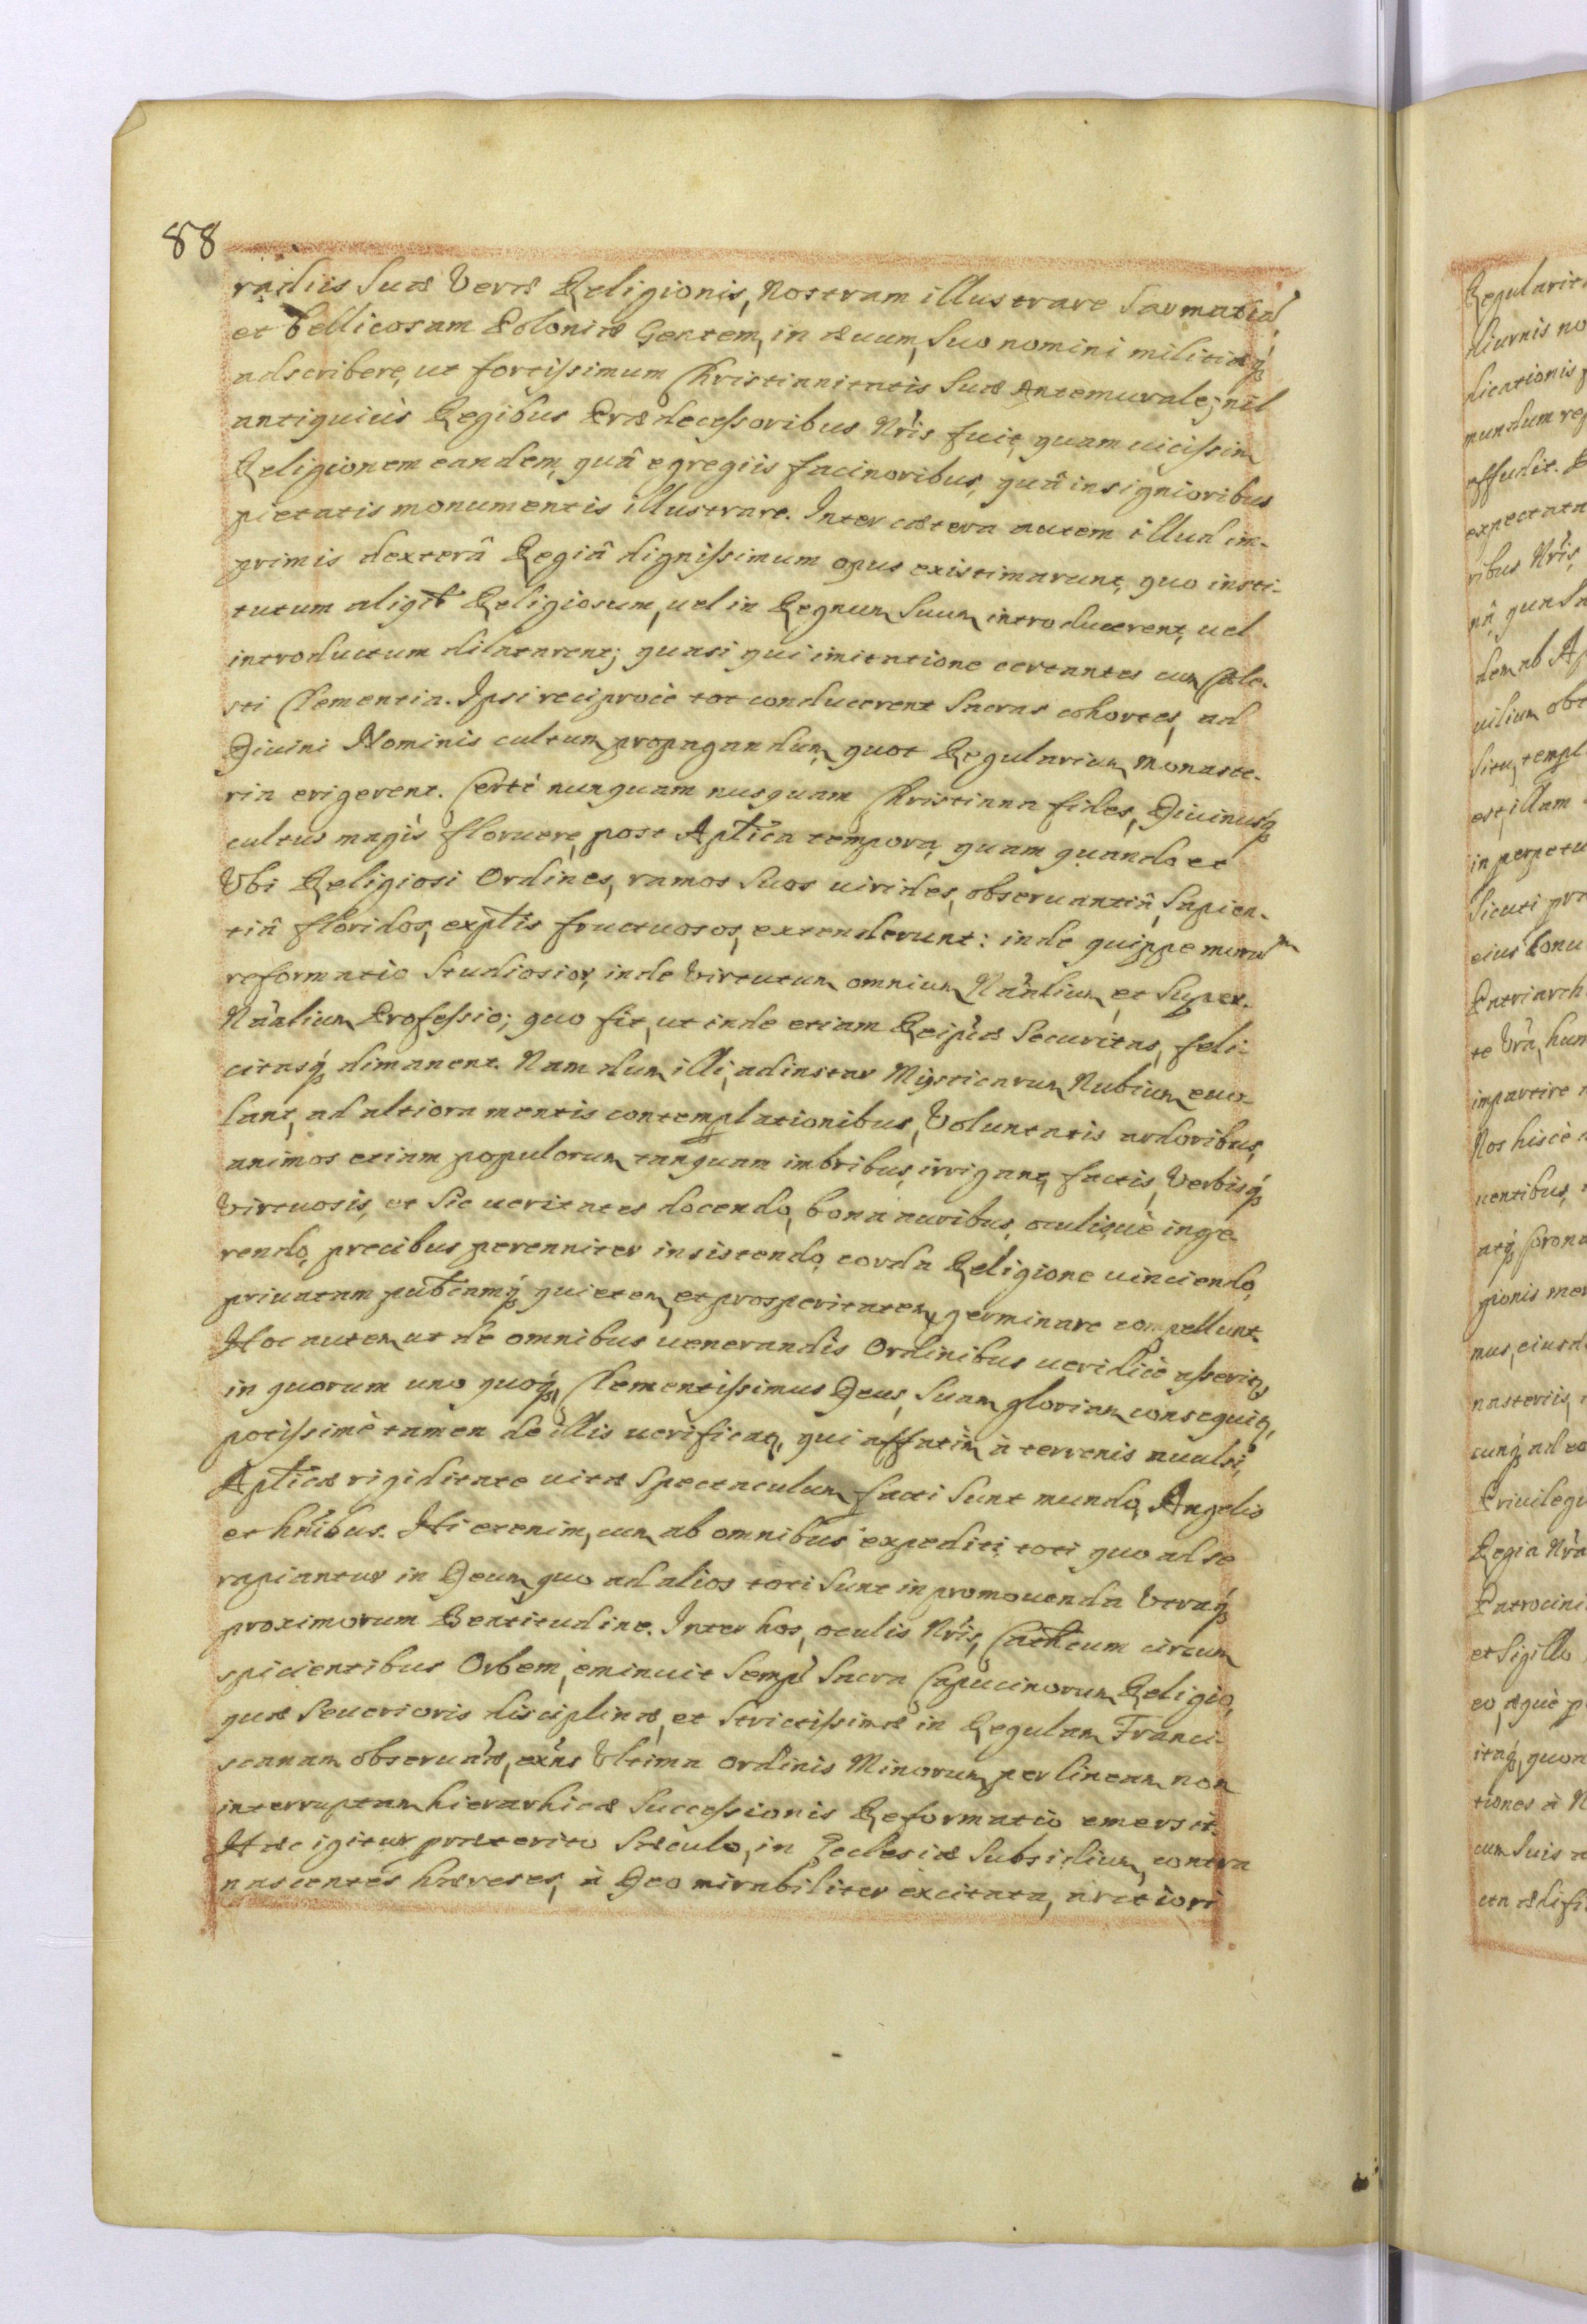 88
radiis suæ veræ Religionis, Nostram illustrare Sarmatiã,
et bellicosam Poloniæ Gentem, in æuum, suo nomini militiæq́
adscribere, ut fortissimum Christianitatis suæ Antemurale; nil
antiquiùs Regibus Prædecessoribus Nr̃is fuit, quam uicissim
Religionem eandem, quâ egregiis facinoribus, quâ insignioribus
pietatis monumentis illustrare. Inter cætera autem illud im-
primis dexterâ Regiâ dignissimum opus existimarunt, quo insti-
tutum aliqđ Religiosum, uel in Regnum suum introducerent, uel
introductum dilatarent; quasi qui imitatione certantes cum Cæle-
sti Clementia. Ipsi reciprocè tot conducerent Sacras cohortes, ad
Diuini Nominis cultum propagandum, quot Regularium Monaste-
ria erigerent. Certè nunquam nusquam Christiana fides, Diuinusq́
cultus magis floruere, post Apłica tempora, quam quando et
Ubi Religiosi Ordines, ramos suos uirides, obseruantiâ, Sapien-
tiâ floridos, expłis fructuosos, extenderunt: inde quippe morum
reformatio studiosior, inde Virtutum omnium Nãalium, et Super-
Nãalium Professio; quo fit, ut inde etiam Reipũæ Securitas, feli-
citasq́ dimanent. Nam dum illi, ad instar Mysticarum Nubium euo-
lant, ad altiora mentis contemplationibus, Voluntatis ardoribus,
animos etiam populorum tanquam imbribus, irrigant, factis, Verbisq́
virtuosis, et sic ueritates docendo, bona auribus, oculisquè inge-
rendo, precibus perenniter insistendo, corda Religione uinciendo,
priuatam publcamq́ quietem, et prosperitatem, germinare compellunt.
Hoc autem ut de omnibus uenerandis Ordinibus ueridicè asseritr,
in quorum uno quoq́, Clementissimus Deus, Suam gloriam consequitr,
potissimè tamen de illis uerificatr, qui affatìm à terrenis auulsi,
Apłicæ rigiditate uitæ Spectaculum facti sunt mundo, Angelis
et hñibus. Hi etenim, cum ab omnibus expediti, toti quo ad se
rapiantur in Deum, quo ad alios toti sunt in promouenda Utraq́
proximorum Beatitudine. Inter hos, oculis Nr̃is, Cathcum circum
spicientibus Orbem, eminuit semp̃ Sacra Capucinorum Religio,
quæ Seuerioris disciplinæ, et strictissimæ in Regulam Franci-
scanam obseruãæ, exñs Ultima Ordinis Minorum, per lineam non
interruptam hierarhicæ Successionis Reformatio emersit.
Hæc igitur præterito Sæculo, in Ecclesiæ Subsidium, contra
nascentes hæreses, à Deo mirabiliter excitata, arctiori